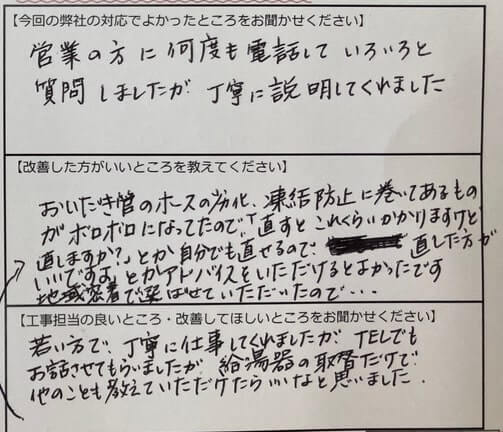 【今回の弊社の対応でよかったところをお聞かせください】
営業の方に何度も電話していろいろと
質問しましたが丁寧に説明してくれました
【改善した方がいいところを教えてください】
おいだき管のホースの劣化、凍結防止に巻いてあるもの
がボロボロになってたので、「直すとこれくらいかかりますけど
直しますか?」とか自分でも直せるので、直した方が
いいですよ」とかアドバイスをいただけるとよかったです
地域密着で選ばせていただいたので・・・
【工事担当の良いところ・改善してほしいところをお聞かせください】
若い方で、丁寧に仕事してくれましたが、TELでも
お話させてもらいましたが、給湯器の取替だけで
他のことも教えていただけたらいいなと思いました.